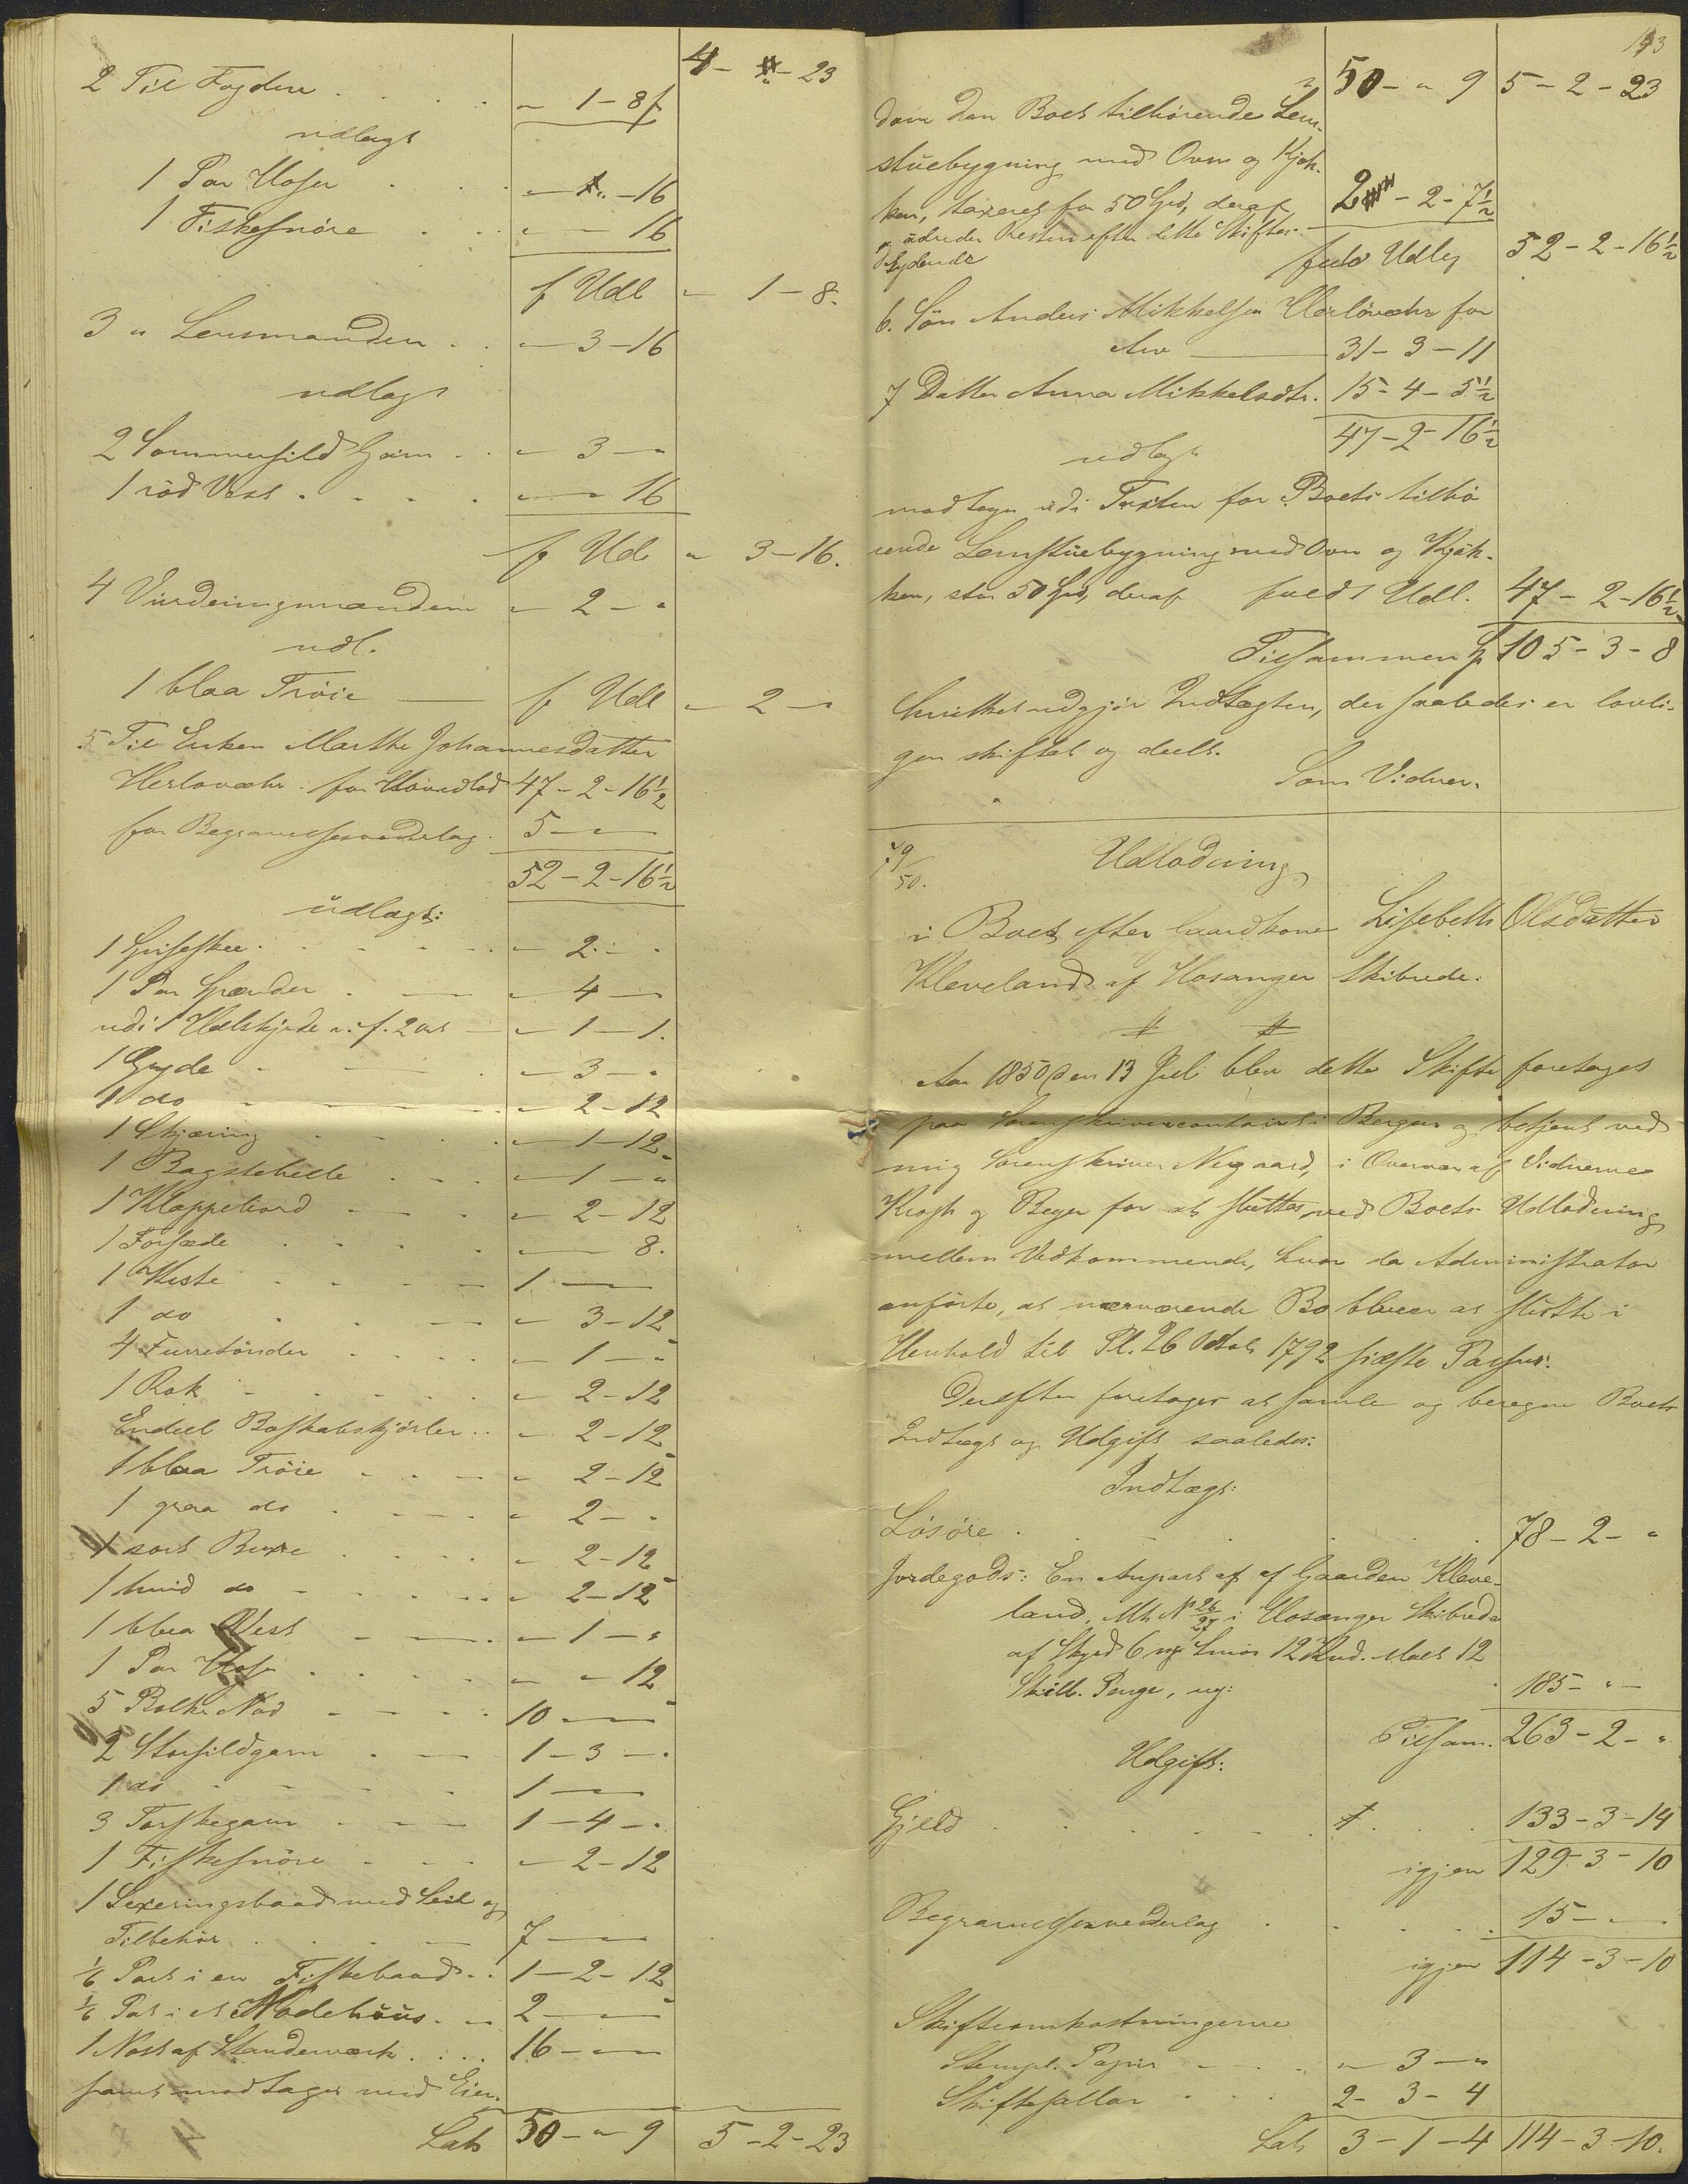 4 - " - 23
2 Til Fogden . . . . " 1 - 8 f
udlagt
1 Par Hoser . . . " - " - 16
1 Fiskesnöre . . " - - 16
f Udl " 1 - 8.
3 " Lensmanden . . " - 3 - 16
udlagt
2 Sommersild Garn . . " 3 - "
1 röd Vest . . . . " - 16
f Udl " 3 - 16.
4 Vurderingsmændene " 2 - "
udl.
1 blaa Tröie — f Udl " 2 - "
5 Til Enken Marthe Johannesdatter
Herlovæhr. for Hovedlod 47 - 2 - 16½
for Begravelsesvederlag. 5 - "
52 - 2 - 16½
udlagt:
1 . . . . . " 2 - "
1 Par Spænder . — " 4 -
udi 1 " - 1 - 1.
1 Gryde . — . " 3 - "
1 do . . . . " 2 - 12
1 Skjæring . . . . " 1 - 12
1 Bagstehelle . . . " 1 - "
1 Klappebord . . . " 2 - 12
1 Forsæde . . . . " - 8.
1 Kiste . . . . 1 - "
1 do . . . . " 3 - 12
4 Furretönder . . . . " 1 - "
1 Rok . . . . . " 2 - 12
Endeel Boskabskjörler . . " 2 - 12
1 blaa Tröie . . . " 2 - 12
1 graa do . . . . " 2 - "
1 sort Buxe . . . . " 2 - 12
1 hvid do . . . . " 2 - 12
1 blaa Vest . . . " 1 - "
1 Par Hoser . . . . " " 12
5 Bolker Nod . . . . 10 - "
2 Storsildgarn . . 1 - 3 - "
1 do . . . . 1 - "
3 Torskegarn . . . 1 - 4 - "
1 Fiskesnöre . . . " 2 - 12
1 Sexeringsbaad med Seil og
Tilbehör . . . . 7 - "
1/6 Part i en Fiskebaad . . 1 - 2 - 12
1/6 Part i et Nodehuus . . 2 - "
1 Nost af Standeværk . . . . 16 - "
samt modtager med Eien-
Lats 50 - " 9 5 - 2 - 23
143
50 - " 9 5 - 2 - 23
dom den Boets tilhörende Lem-
stuebygning med Ovn og Kjök-
ken, taxeret for 50 Spd, deraf 2 - 2 - 7½
og udreder Resten efter dette Skiftes
Lydende fuld Udlg 52 - 2 - 16½
6. Sön Anders Mikkelsen Herlövæhr for
Arv — 31 - 3 - 11
7 Datter Anna Mikkelsdtr. 15 - 4 - 5½
47 - 2 - 16½
udlagt
modtager udi Taxten for Boets tilhö
rende Lemstuebygning med Ovn og Kjök-
ken, stor 50 Spd, deraf fuldt Udl. 47 - 2 - 16½
Tilsammen Sp 105 - 3 - 8
hvilket udgjör Indtægten, der saaledes er lovli-
gen skiftet og deelt.
Som Vidner.
79/50. Udlodning
i Boet efter Gaardkone Lisebeth Olsdatter
Kleveland af Hosanger Skibrede.
Aar 1850 den 13 Juli blev dette Skifte foretaget
paa Sorenskrivercontoiret i Bergen og betjent ved
mig Sorenskriver Nygaard, i Overvær af Vidnerne
Krogh og Beyer for at sluttes ved Boets Udlodning
mellem Vedkommende, hvor da Administrator
anförte, at nærværende Bo bliver at slutte i
Henhold til Pl. 26 Octob 1792 sidste Passus.
Derefter foretages at samle og beregne Boets
Indtægt og Udgift saaledes:
Indtægt:
Lösöre . . . . . 78 - 2 - "
Jordegods: En Anpart af af Gaarden Kleve-
land, Mtr No 26/27 i Hosanger Skibrede
af Skyld 6 Smör 12 Malt 12
Skill. Penge, 185 - " -
Tilsam. 263 - 2 - "
Udgift:
Gjeld . . . . . . . 133 - 3 - 14
igjen 129 - 3 - 10
Begravelsesvederlag . . . . 15 - "
igjen 114 - 3 - 10
Skifteomkostningerne
Stempl. Papir . . . . " 3 - "
Skiftesallar . . . 2 - 3 - 4
Lats 3 - 1 - 4 114 - 3 - 10.